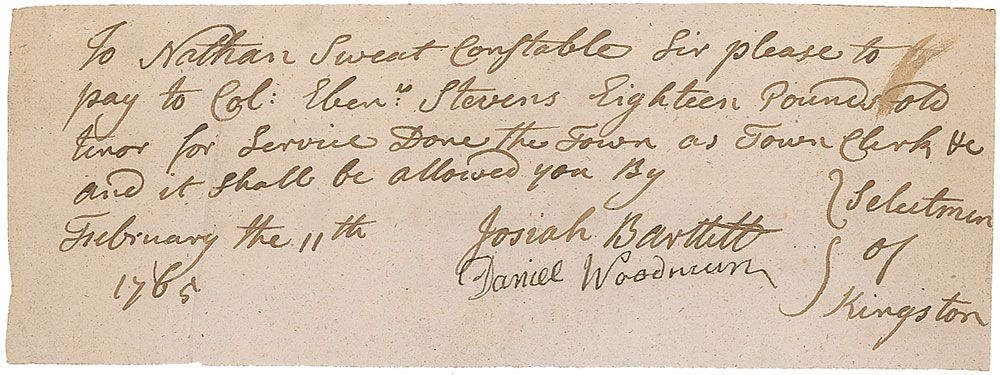 To Nathan Sweat Constable Sir please to
pay to Col: Ebenr. Stevens Eighteen Pounds old
tenor for Service Done the Town as Town Clerk &c
and it shall be allowed you By
February the 11th
1765
Josiah Bartlett
Daniel Woodmun
Selectmen
of
Kingston